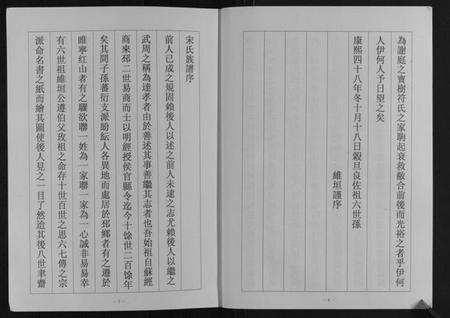 為謝庭之寶樹符氏之家駒起衰救敝合前後而光裕之者乎伊何
人伊何人予日望之矣
康熙四十八年冬十月十八日穀旦良佐祖六世孫
維垣謹序
宋氏族譜序
前人已成之規固賴後人以述之前人未逮之志尤賴後人以繼之
武周之稱為達孝者由於善述其事善繼其志者也吾始祖自蘇經
商來邳二世易商而士以明經授侯官縣令迄今十餘世二百餘年
矣其間子孫蕃衍支派紛紜人各異地而處居於邳鄉者有之遷於
睢寧紅山者有之驟欲聯一姓為一家聯一家為一心誠非易易幸
有六世祖維垣公遵伯父玫祖之命存十世百世之思六七傳之宗
派命名書之紙而繪其圖使後人見之一目了然迨其後八世聿齋